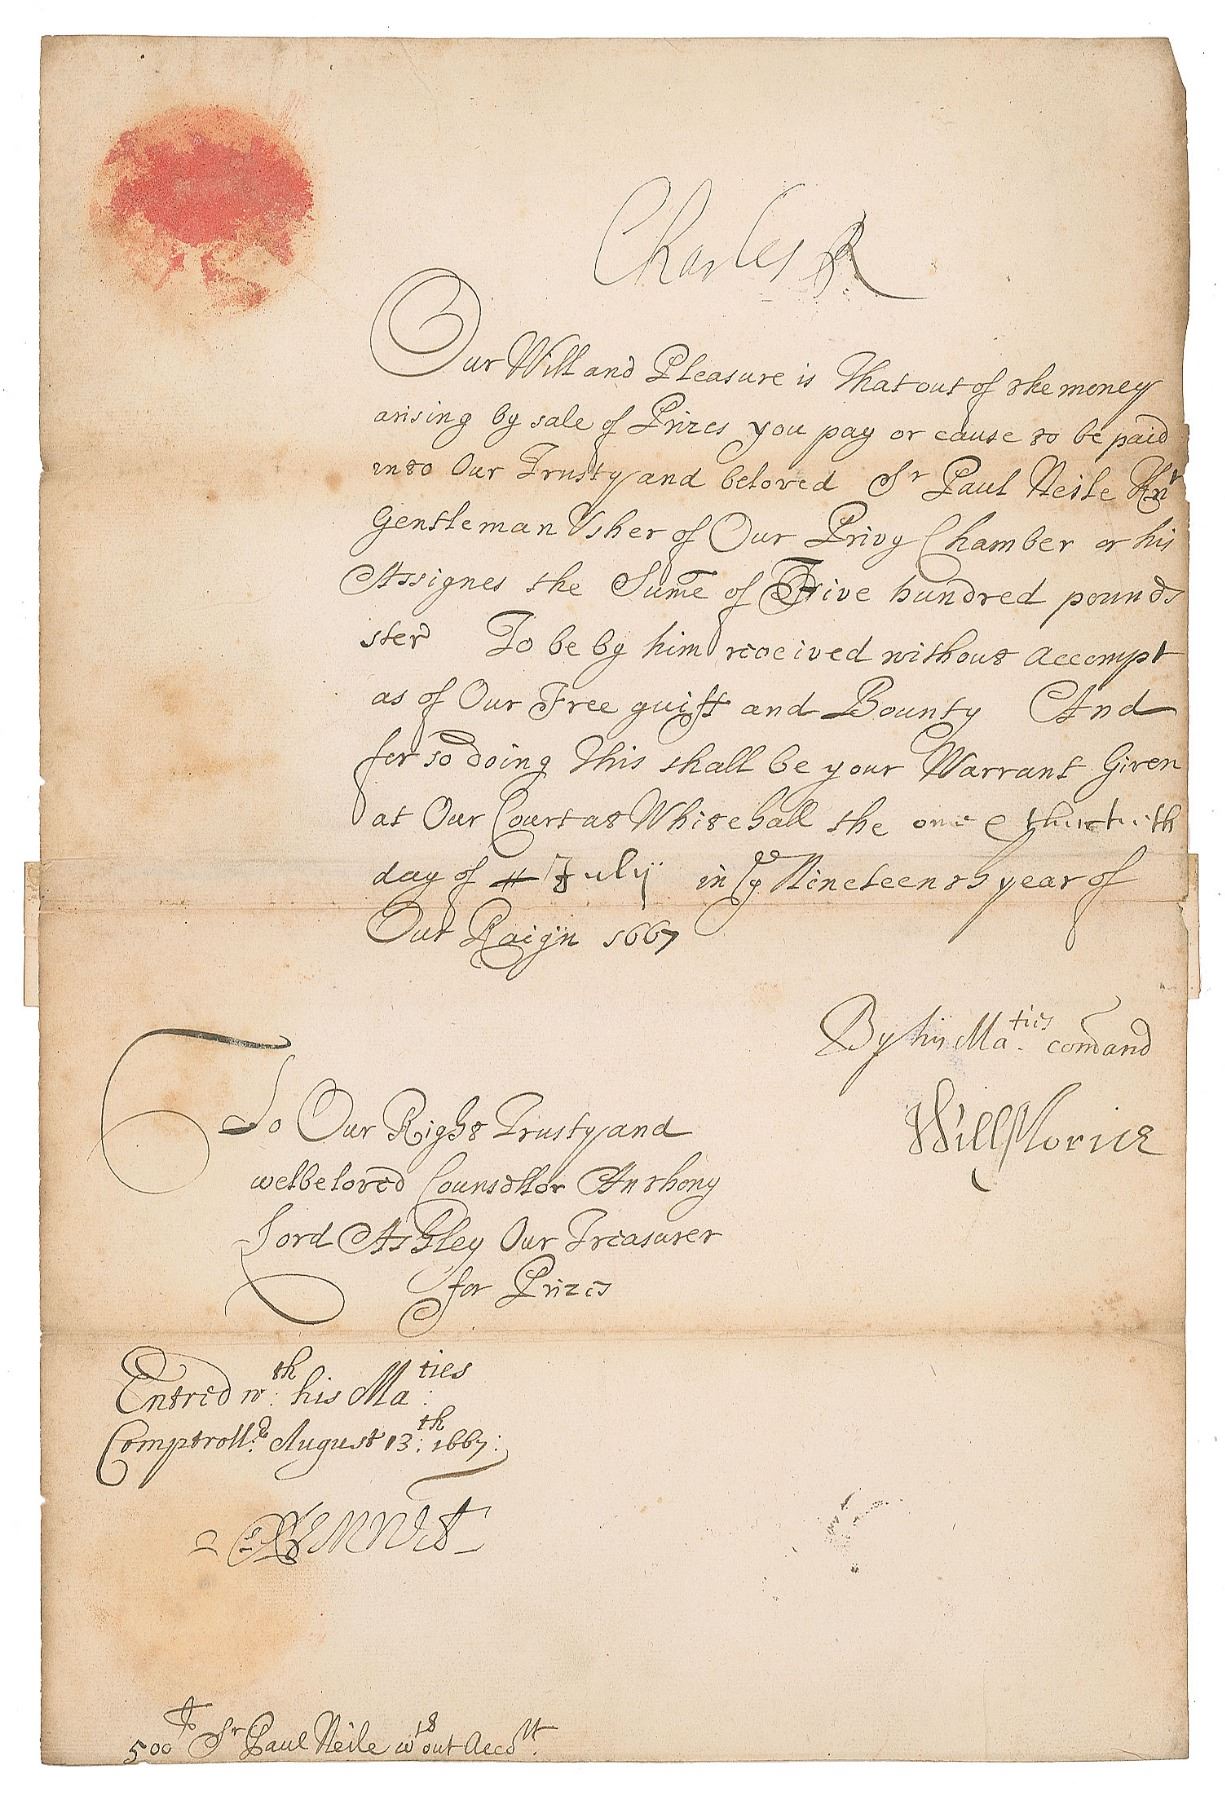 Charles R
Our Will and Pleasure is That out of the money
arising by sale of Prizes you pay or cause to be paid
unto Our Trusty and beloved Sr Paul Neile Knt
Gentleman Usher of Our Privy Chamber or his
Assignes the Sume of Five hundred pounds
ster To be by him received without Accompt
as of Our Free guift and Bounty And
for so doing This shall be your Warrant Given
at Our Court at Whitehall the one & thirtieth
day of July in ye Nineteenth year of
Our Raign 1667
By his Ma.ties comand
Will Morice
To Our Right Trusty and
welbeloved Counsellor Anthony
Lord Ashley Our Treasurer
for Prizes
Entred wth: his Maties:
Comptroll.r August 13:th 1667:
500 Sr Paul Neile wthout Acco.tt